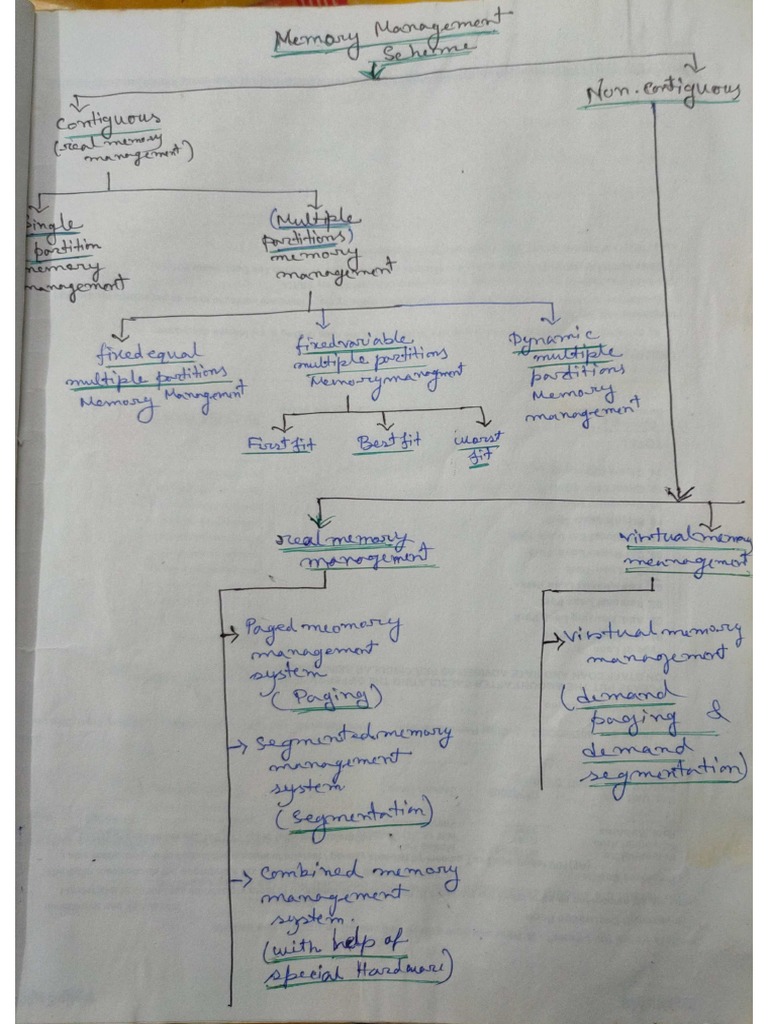 Memory Management
Scheme
Contiguous
(real memory
management)
Non-contiguous
Single
partition
memory
management
(Multiple
partitions)
memory
management
fixed equal
multiple partitions
Memory Management
fixed variable
multiple partitions
Memory managment
Dynamic
multiple
partitions
Memory
management
First fit
Best fit
worst
fit
real memory
management
virtual memory
meanagement
Paged meomory
management
system
(Paging)
Segmented memory
management
system
(Segmentation)
Combined memory
management
system.
(with help of
special Hardware)
virtual memory
management
(demand
paging &
demand
segmentation)